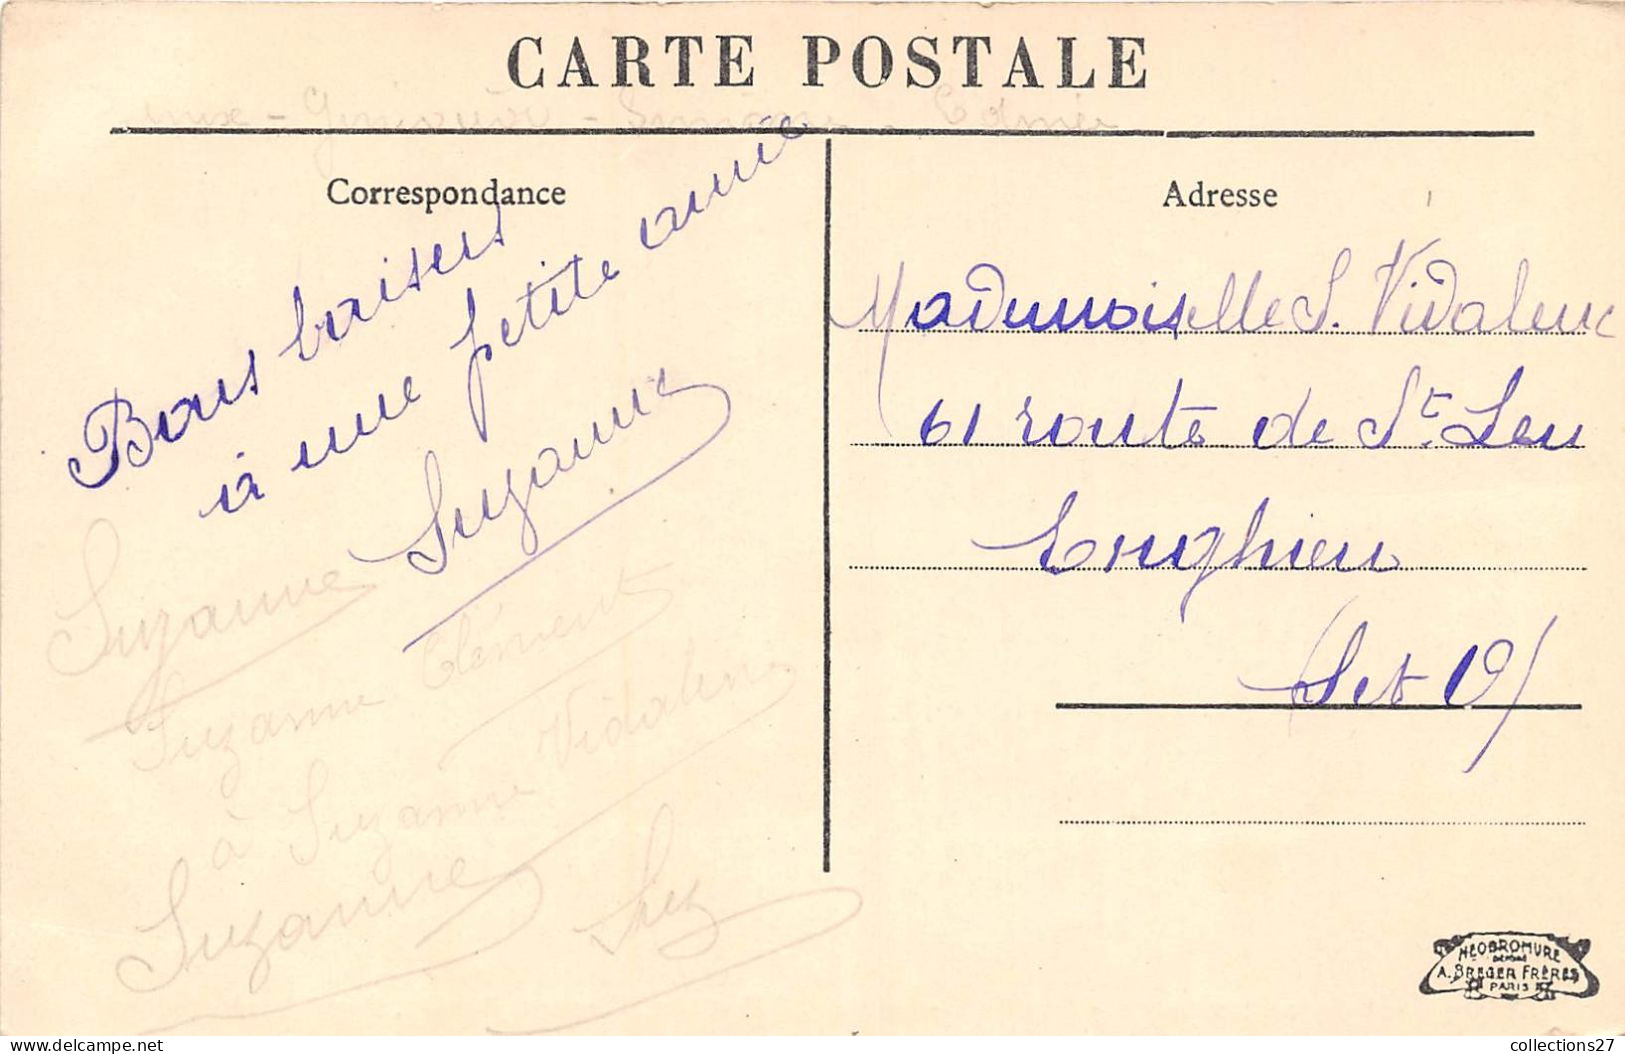 CARTE POSTALE
Correspondance
Bons baisers
à une petite amie
Suzanne
Suzanne
Suzanne Clément
à Suzanne Vidalenc
Suzanne
Suz
Adresse
Mademoiselle S. Vidalenc
61 route de St. Leu
Enghien
(Set O)
NÉOBROMURE
A. BREGER FRÈRES
PARIS
collections27